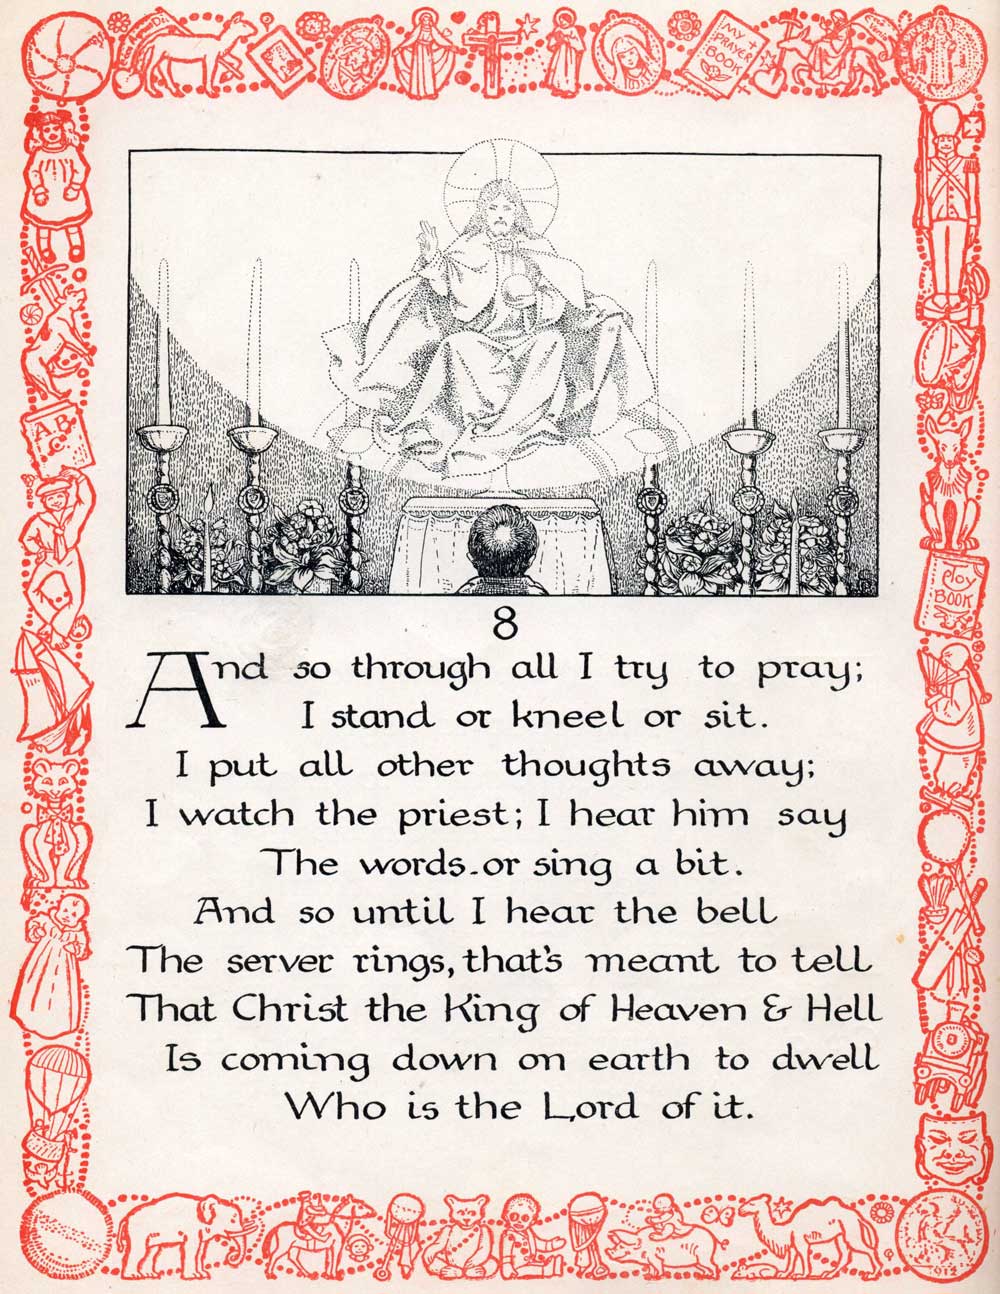 MY
PRAYER
BOOK
A.B.
C
8
And so through all I try to pray;
I stand or kneel or sit.
I put all other thoughts away;
I watch the priest; I hear him say
The words.or sing a bit.
And so until I hear the bell
The server rings, that's meant to tell
That Christ the King of Heaven & Hell
Is coming down on earth to dwell
Who is the Lord of it.
BOOK